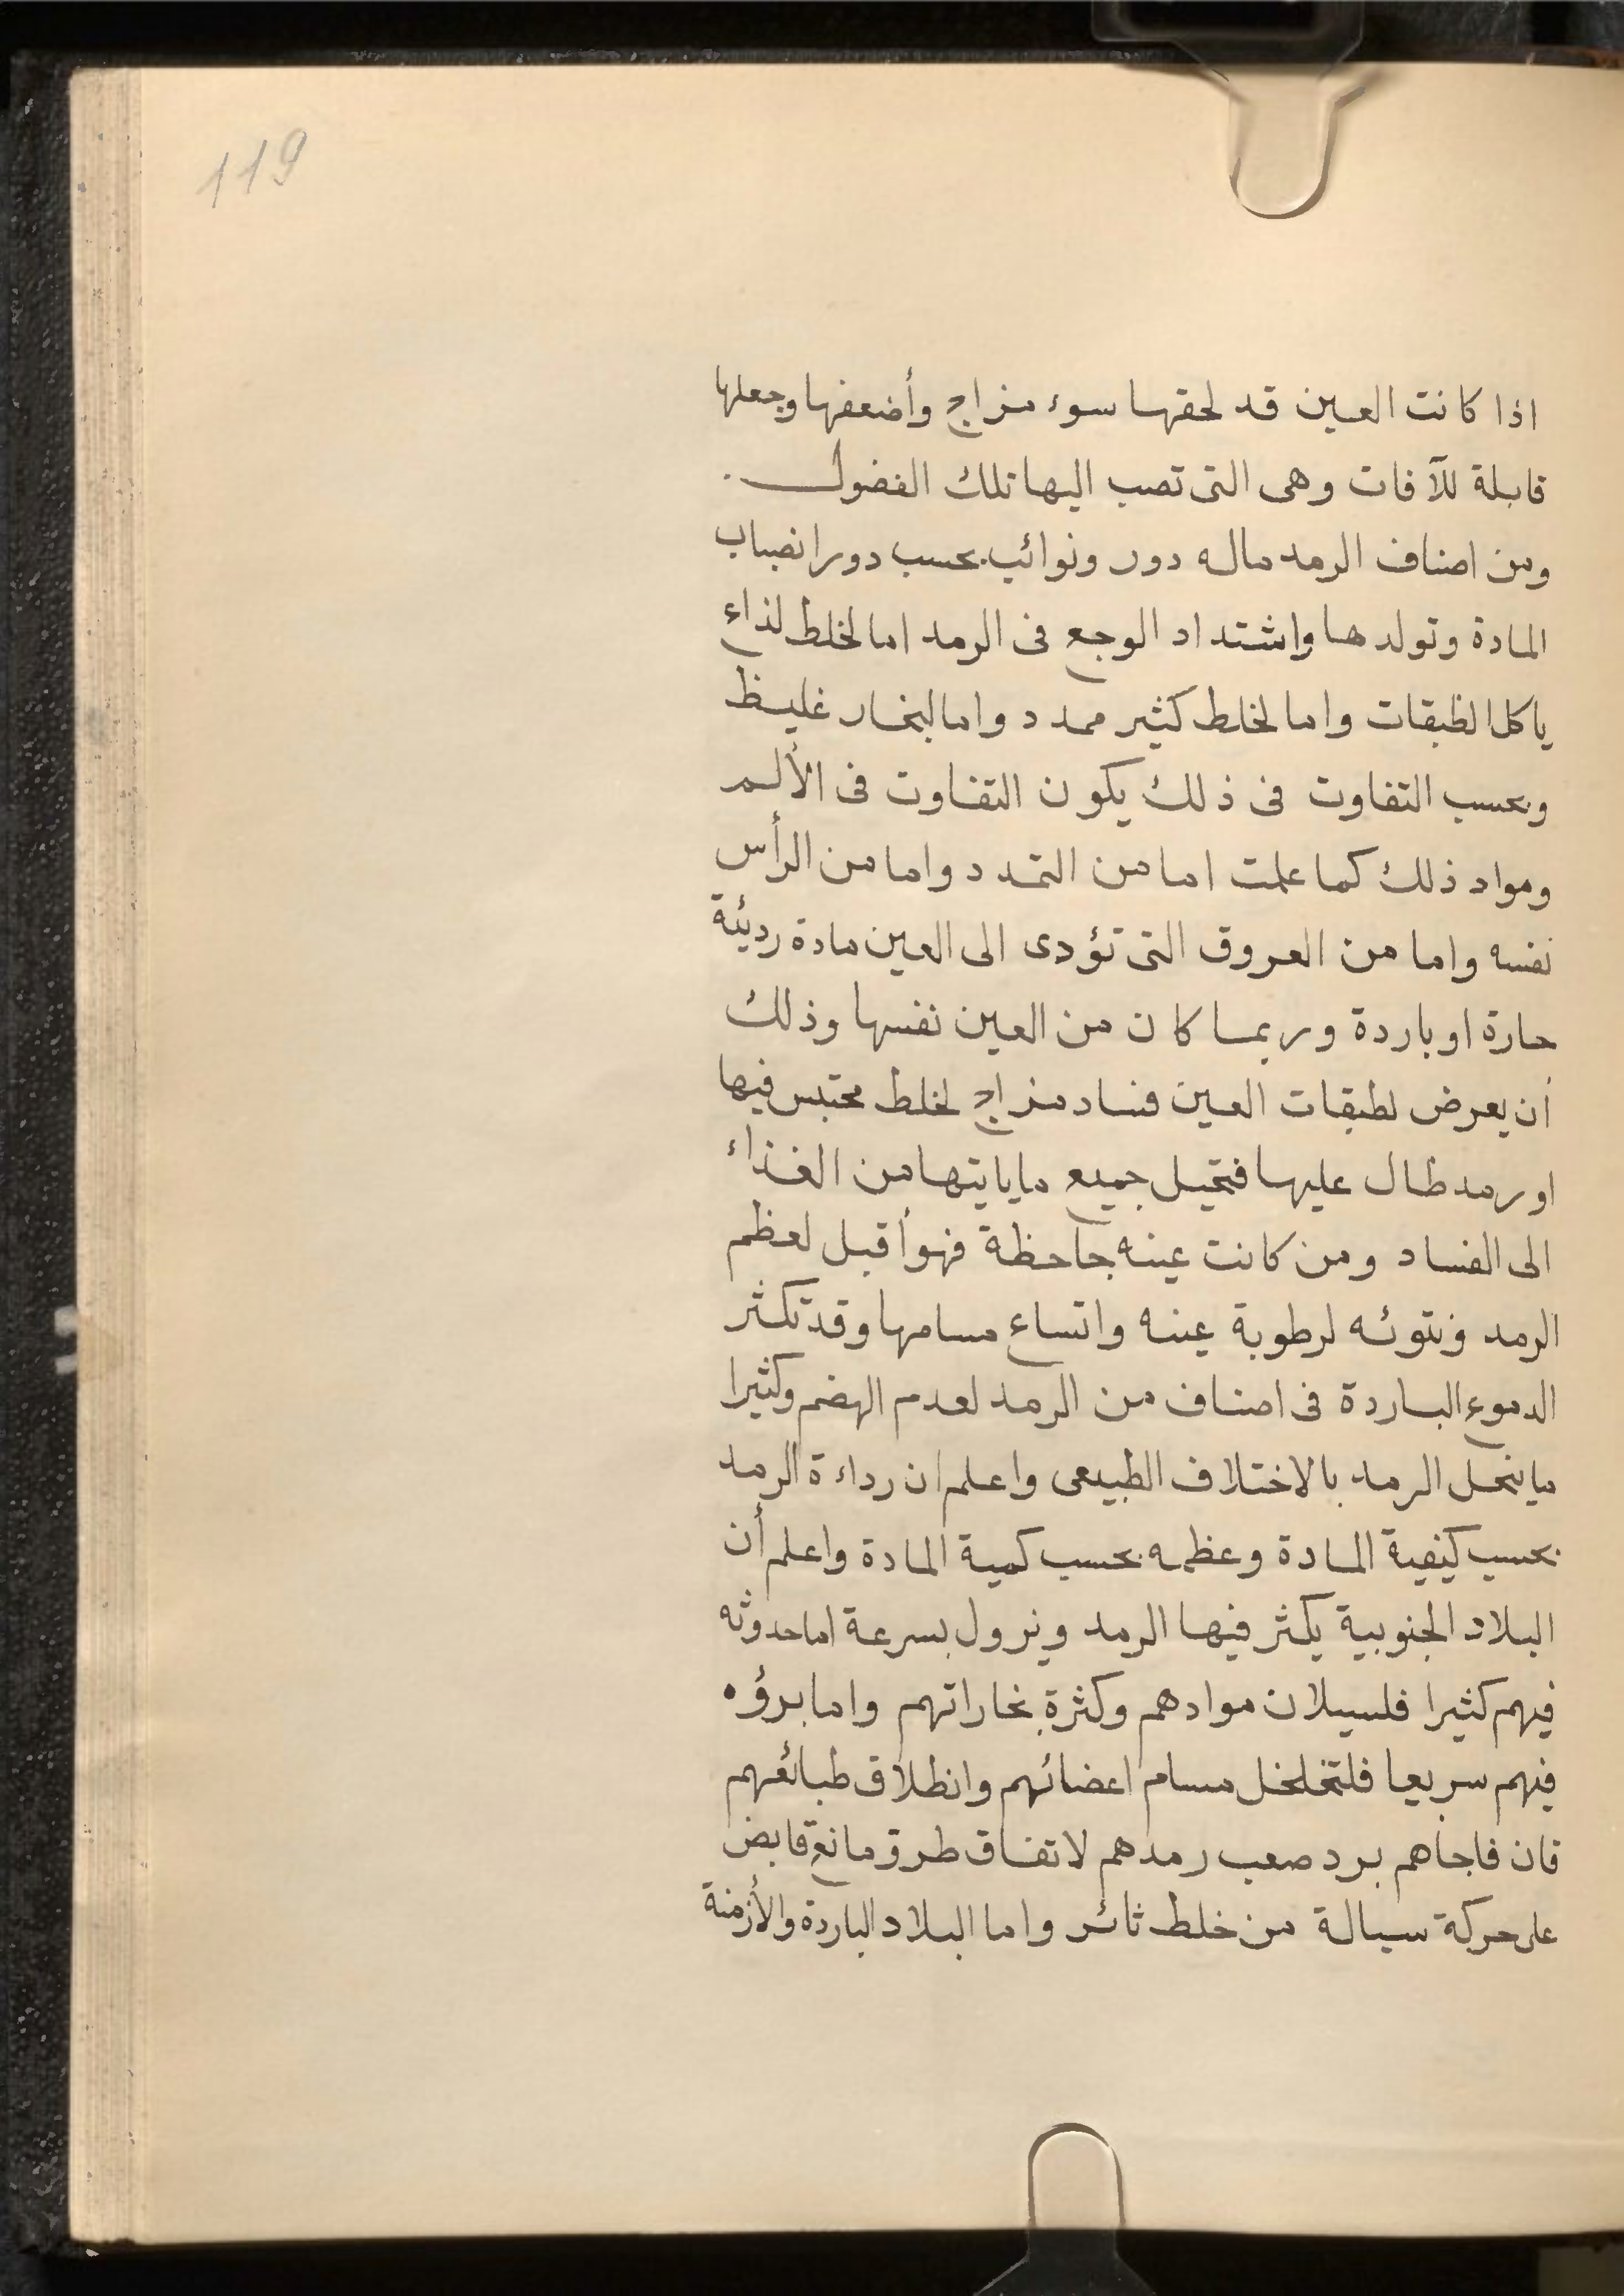 119
اذا كانت العين قد لحقها سوء مزاج وأضعفها وجعلها
قابلة للآفات وهى التى تصب اليها تلك الفضول .
ومن اصناف الرمد ماله دور ونوائب بحسب دور انصباب
المادة وتولدها واشتداد الوجع فى الرمد اما لخلط لذاع
ياكل الطبقات واما لخلط كثير ممدد واما لبخار غليظ
وبحسب التفاوت فى ذلك يكون التفاوت فى الألم
ومواد ذلك كما علمت اما من التمدد واما من الرأس
نفسه واما من العروق التى تؤدى الى العين مادة رديئة
حارة او باردة وربما كان من العين نفسها وذلك
أن يعرض لطبقات العين فساد مزاج لخلط محتبس فيها
او رمد طال عليها فتحيل جميع ما ياتيها من الغذاء
الى الفساد ومن كانت عينه جاحظة فهو أقبل لعظم
الرمد ونتوئه لرطوبة عينه واتساع مسامها وقد تكثر
الدموع الباردة فى اصناف من الرمد لعدم الهضم وكثيرا
ما ينحل الرمد بالاختلاف الطبيعى واعلم ان رداءة الرمد
بحسب كيفية المادة وعظمه بحسب كمية المادة واعلم أن
البلاد الجنوبية يكثر فيها الرمد ويزول بسرعة اما حدوثه
فيهم كثيرا فلسيلان موادهم وكثرة بخاراتهم واما برؤه
فيهم سريعا فلتخلخل مسام اعضائهم وانطلاق طبائعهم
فان فاجاهم برد صعب رمدهم لاتفاق طرو مانع قابض
على حركة سيالة من خلط ثائر واما البلاد الباردة والأزمنة